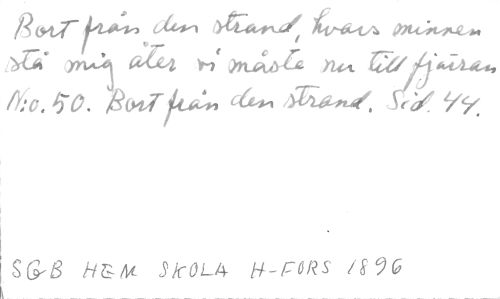 Bort från den strand, hvars minnen
stå mig åter vi måste nu till fjärran
N:o. 50. Bort från den strand. Sid. 44.
SGB HEM SKOLA H-FORS 1896